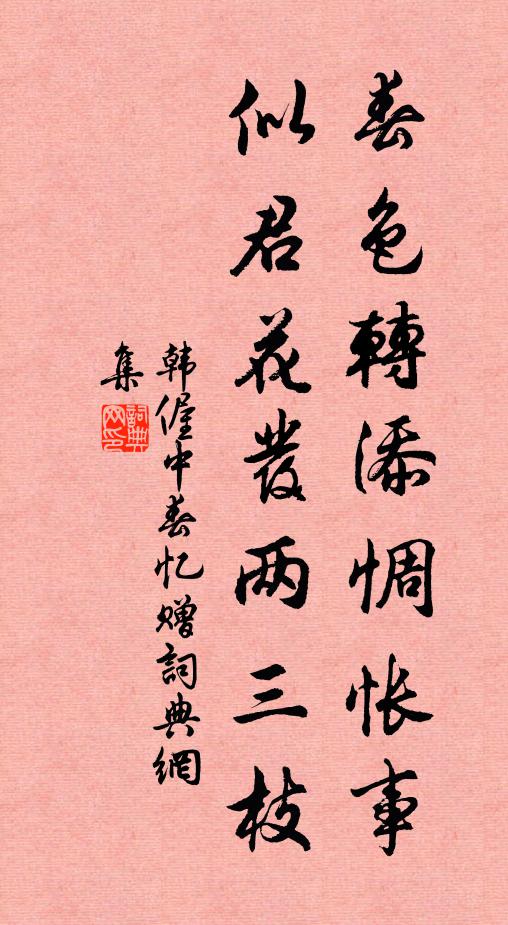 春色轉添惆怅事
似君花發两三枝
韩偓中春忆赠詞典網
集
詞典网印